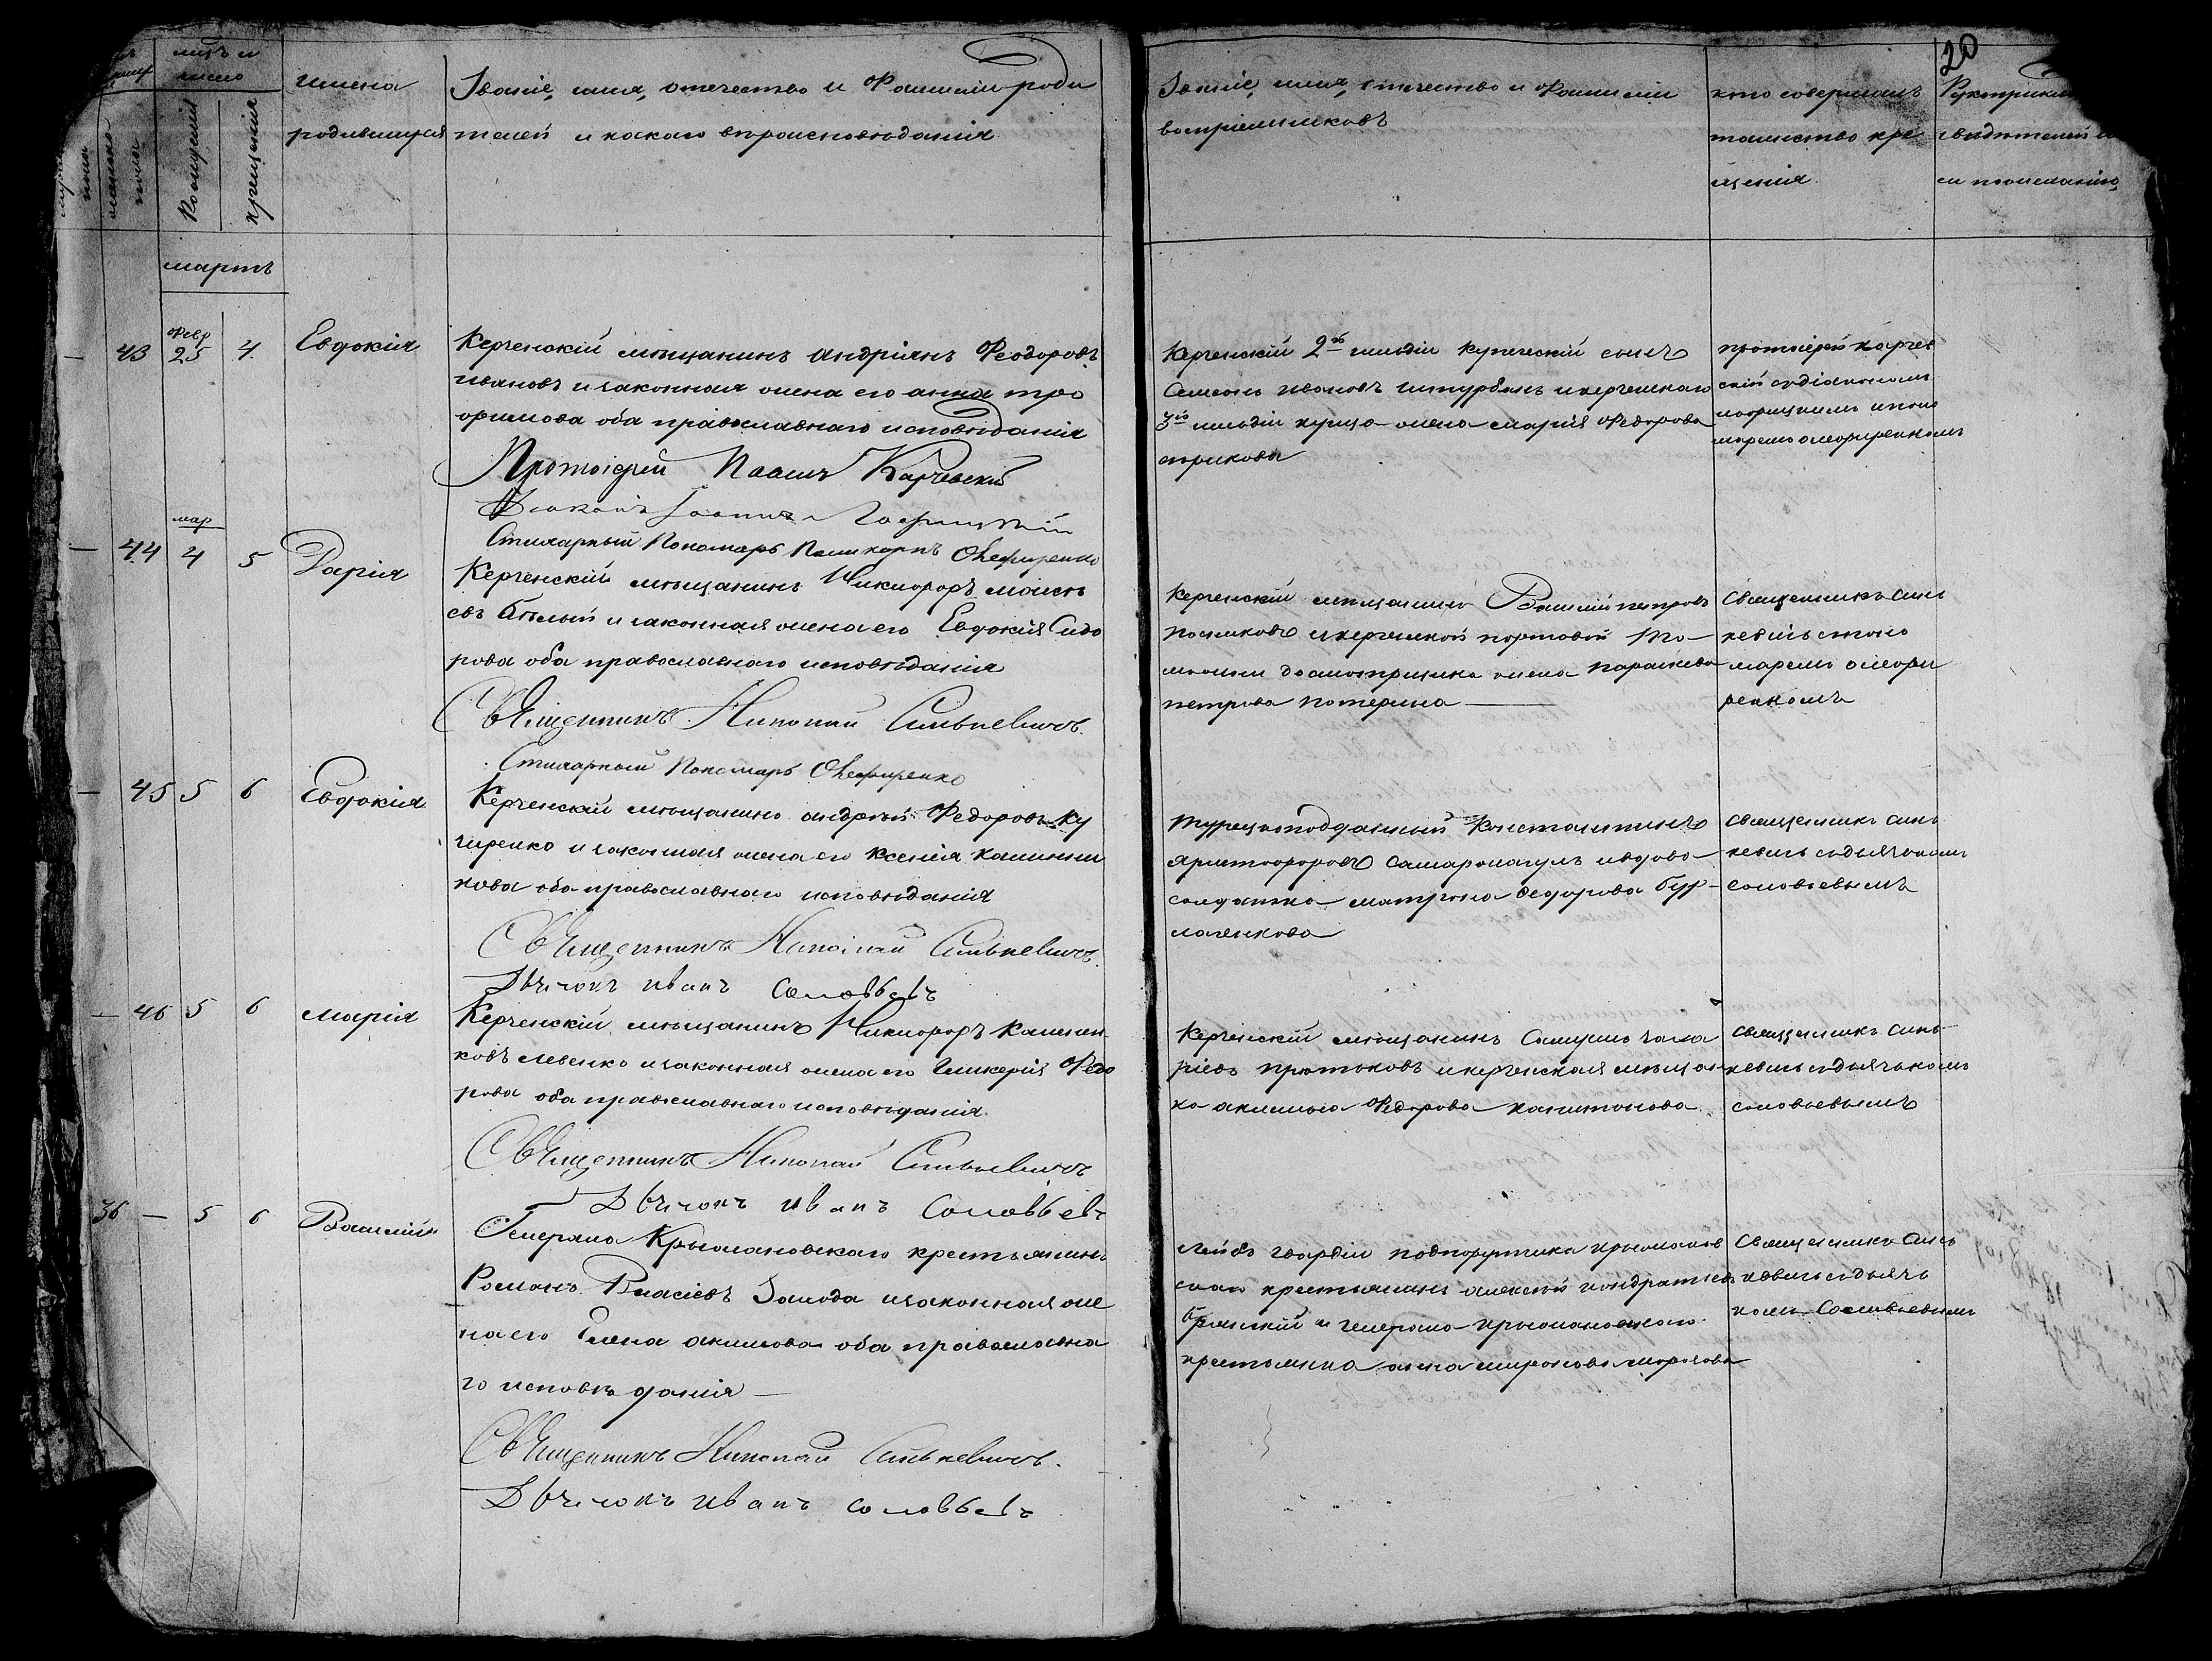 мѣсяцъ и
число
мужеска
пола
женска
пола
Рожденія
крещенія
имена
родившихся
Званіе, имя, отечество и Фамиліи роди
телей и какого вѣроисповѣданія
Званіе, имя, отечество и Фамиліи
воспріемниковъ
20
кто совершалъ
таинство кре
щенія
Рукоприкла
свидѣтелей
по желанію
мартъ
— 43 Февр 25 4. Евдокія
Керченскій мѣщанинъ Андріянъ Феодоровъ
Ивановъ и законная жена его анна тро
фимова оба православнаго исповѣданія
Протоіерей Павелъ Карчевскій
Діаконъ Іоаннъ
Стихарный Пономарь Поликарпъ Ожеф\иренко
Керченскій 2й гильдіи купеческій сынъ
Семенъ Ивановъ Штурбинъ и керченскаго
3й гильдіи купца жена Марія Федорова
протоіерей Карчев
скій съ діакономъ
и поно
маремъ
— 44 мар 4 5 Дарія
Керченскій мѣщанинъ Никифоръ моисѣ
евъ Бѣлый и законная жена его Евдокія Сидо
рова оба православнаго исповѣданія
Священникъ Николай Синькевичъ.
Стихарный Пономарь
Керченскій мѣщанинъ Василій петровъ
и керченской портовой та
можни досмотрщика жена параскева
петрова потерина —
Священникъ Синь
кевичь съ поно
маремъ
ренкомъ
— 45 5 6 Евдокія
Керченскій мѣщанинъ андрей Федоровъ Ку
чиренко и законная жена его Ксенія калинни
кова оба православнаго исповѣданія
Священникъ Николай Синькевичъ.
Дьячокъ Иванъ Соловьевъ
турецкоподданный Константинъ
Христофоровъ и вдова
солдатка матрона Федорова Бур
лаченкова
священникъ Синь
кевичь съ дьячкомъ
Соловьевымъ
— 46 5 6 марія
Керченскій мѣщанинъ Никифоръ Калинни
ковъ Левенко и законная жена его Гликерія Федо
рова оба православнаго исповѣданія
Священникъ Николай Синькевичъ
Дьячокъ Иванъ Соловьевъ
Керченскій мѣщанинъ Самуилъ Заха
ріевъ и керченская мѣщан
ка акилина Федорова капитонова
священникъ Синь
кевичь съ дьячкомъ
Соловьевымъ
36 — 5 6 Василій
Генерала Крымановскаго крестьянинъ
Романъ Власіевъ Замода и законная же
на его Елена акимова оба православна
го исповѣданія —
Священникъ Николай Синькевичъ.
Дьячокъ Иванъ Соловьевъ
Лейбъ Гвардіи подпоручика крыманов
скаго крестьянинъ алексѣй кондратіевъ
и генерала крымановскаго
крестьянка анна миронова
Священникъ Синь
кевичь съ дьяч
комъ Соловьевымъ